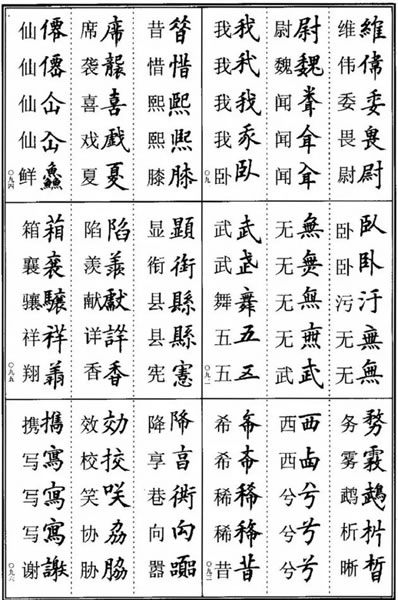 維偉委畏尉
维伟委畏尉
尉魏
尉魏闻闻闻
我我我卧
我我我我卧
臥卧汙無無
卧卧污无无
無無無武
无无无无武
武武舞五五
武武舞五五
務霧鵡析晳
务雾鹉析晰
西西兮兮兮
西西兮兮兮
希希稀稀昔
希希稀稀昔
昔惜熙熙膝
昔惜熙熙膝
席襲喜戲夏
席袭喜戏夏
僊僊仚仚鱻
仙仙仙仙鲜
〇九四
顯衔縣縣憲
显衔县县宪
陷羨獻詳香
陷羡献详香
箱襄驤祥翔
箱襄骧祥翔
〇九五
降享巷向囂
降享巷向嚣
効校咲脇
效校笑协胁
携寫寫寫謝
携写写写谢
〇九六